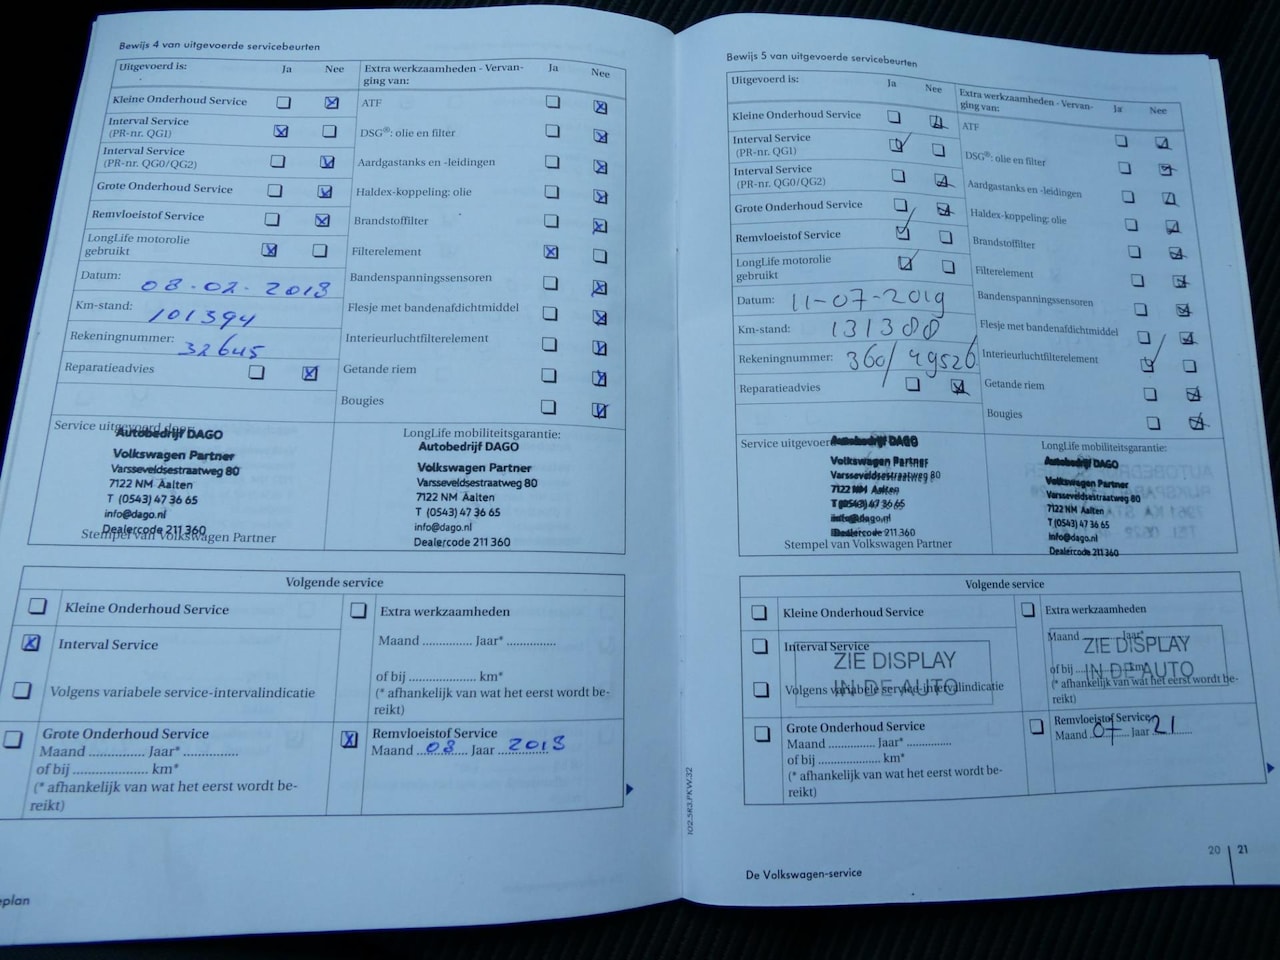 Bewijs 4 van uitgevoerde servicebeurten
Uitgevoerd is: Ja Nee
Kleine Onderhoud Service
Interval Service
(PR-nr. QG1)
Interval Service
(PR-nr. QG0/QG2)
Grote Onderhoud Service
Remvloeistof Service
LongLife motorolie
gebruikt
Datum: 08-02-2018
Km-stand: 101394
Rekeningnummer: 32645
Reparatieadvies
Extra werkzaamheden - Vervan- Ja Nee
ging van:
ATF
DSG®: olie en filter
Aardgastanks en -leidingen
Haldex-koppeling: olie
Brandstoffilter
Filterelement
Bandenspanningssensoren
Flesje met bandenafdichtmiddel
Interieurluchtfilterelement
Getande riem
Bougies
Service uitgevoerd door:
Autobedrijf DAGO
Volkswagen Partner
Varsseveldsestraatweg 80
7122 NM Aalten
T (0543) 47 36 65
info@dago.nl
Dealercode 211 360
Stempel van Volkswagen Partner
LongLife mobiliteitsgarantie:
Autobedrijf DAGO
Volkswagen Partner
Varsseveldsestraatweg 80
7122 NM Aalten
T (0543) 47 36 65
info@dago.nl
Dealercode 211 360
Volgende service
Kleine Onderhoud Service
Interval Service
Volgens variabele service-intervalindicatie
Grote Onderhoud Service
Maand .............. Jaar* ..............
of bij ................... km*
(* afhankelijk van wat het eerst wordt be-
reikt)
Extra werkzaamheden
Maand ............. Jaar* .............
of bij ................... km*
(* afhankelijk van wat het eerst wordt be-
reikt)
Remvloeistof Service
Maand 08 Jaar 2018
eplan
Bewijs 5 van uitgevoerde servicebeurten
Uitgevoerd is: Ja Nee
Kleine Onderhoud Service
Interval Service
(PR-nr. QG1)
Interval Service
(PR-nr. QG0/QG2)
Grote Onderhoud Service
Remvloeistof Service
LongLife motorolie
gebruikt
Datum: 11-07-2019
Km-stand: 131300
Rekeningnummer: 360/49526
Reparatieadvies
Extra werkzaamheden - Vervan- Ja Nee
ging van:
ATF
DSG®: olie en filter
Aardgastanks en -leidingen
Haldex-koppeling: olie
Brandstoffilter
Filterelement
Bandenspanningssensoren
Flesje met bandenafdichtmiddel
Interieurluchtfilterelement
Getande riem
Bougies
Service uitgevoerd
Autobedrijf DAGO
Volkswagen Partner
Varsseveldsestraatweg 80
7122 NM Aalten
T (0543) 47 36 65
info@dago.nl
Dealercode 211 360
Stempel van Volkswagen Partner
LongLife mobiliteitsgarantie:
Autobedrijf DAGO
Volkswagen Partner
Varsseveldsestraatweg 80
7122 NM Aalten
T (0543) 47 36 65
info@dago.nl
Dealercode 211 360
Volgende service
Kleine Onderhoud Service
Interval Service
Volgens variabele service-intervalindicatie
ZIE DISPLAY
IN DE AUTO
Grote Onderhoud Service
Maand .............. Jaar* ..............
of bij ................... km*
(* afhankelijk van wat het eerst wordt be-
reikt)
Extra werkzaamheden
Maand ........ Jaar* ........
of bij ............ km*
(* afhankelijk van wat het eerst wordt be-
reikt)
ZIE DISPLAY
IN DE AUTO
Remvloeistof Service
Maand 07 Jaar 21
102.5R3.PKW.32
De Volkswagen-service
20 21